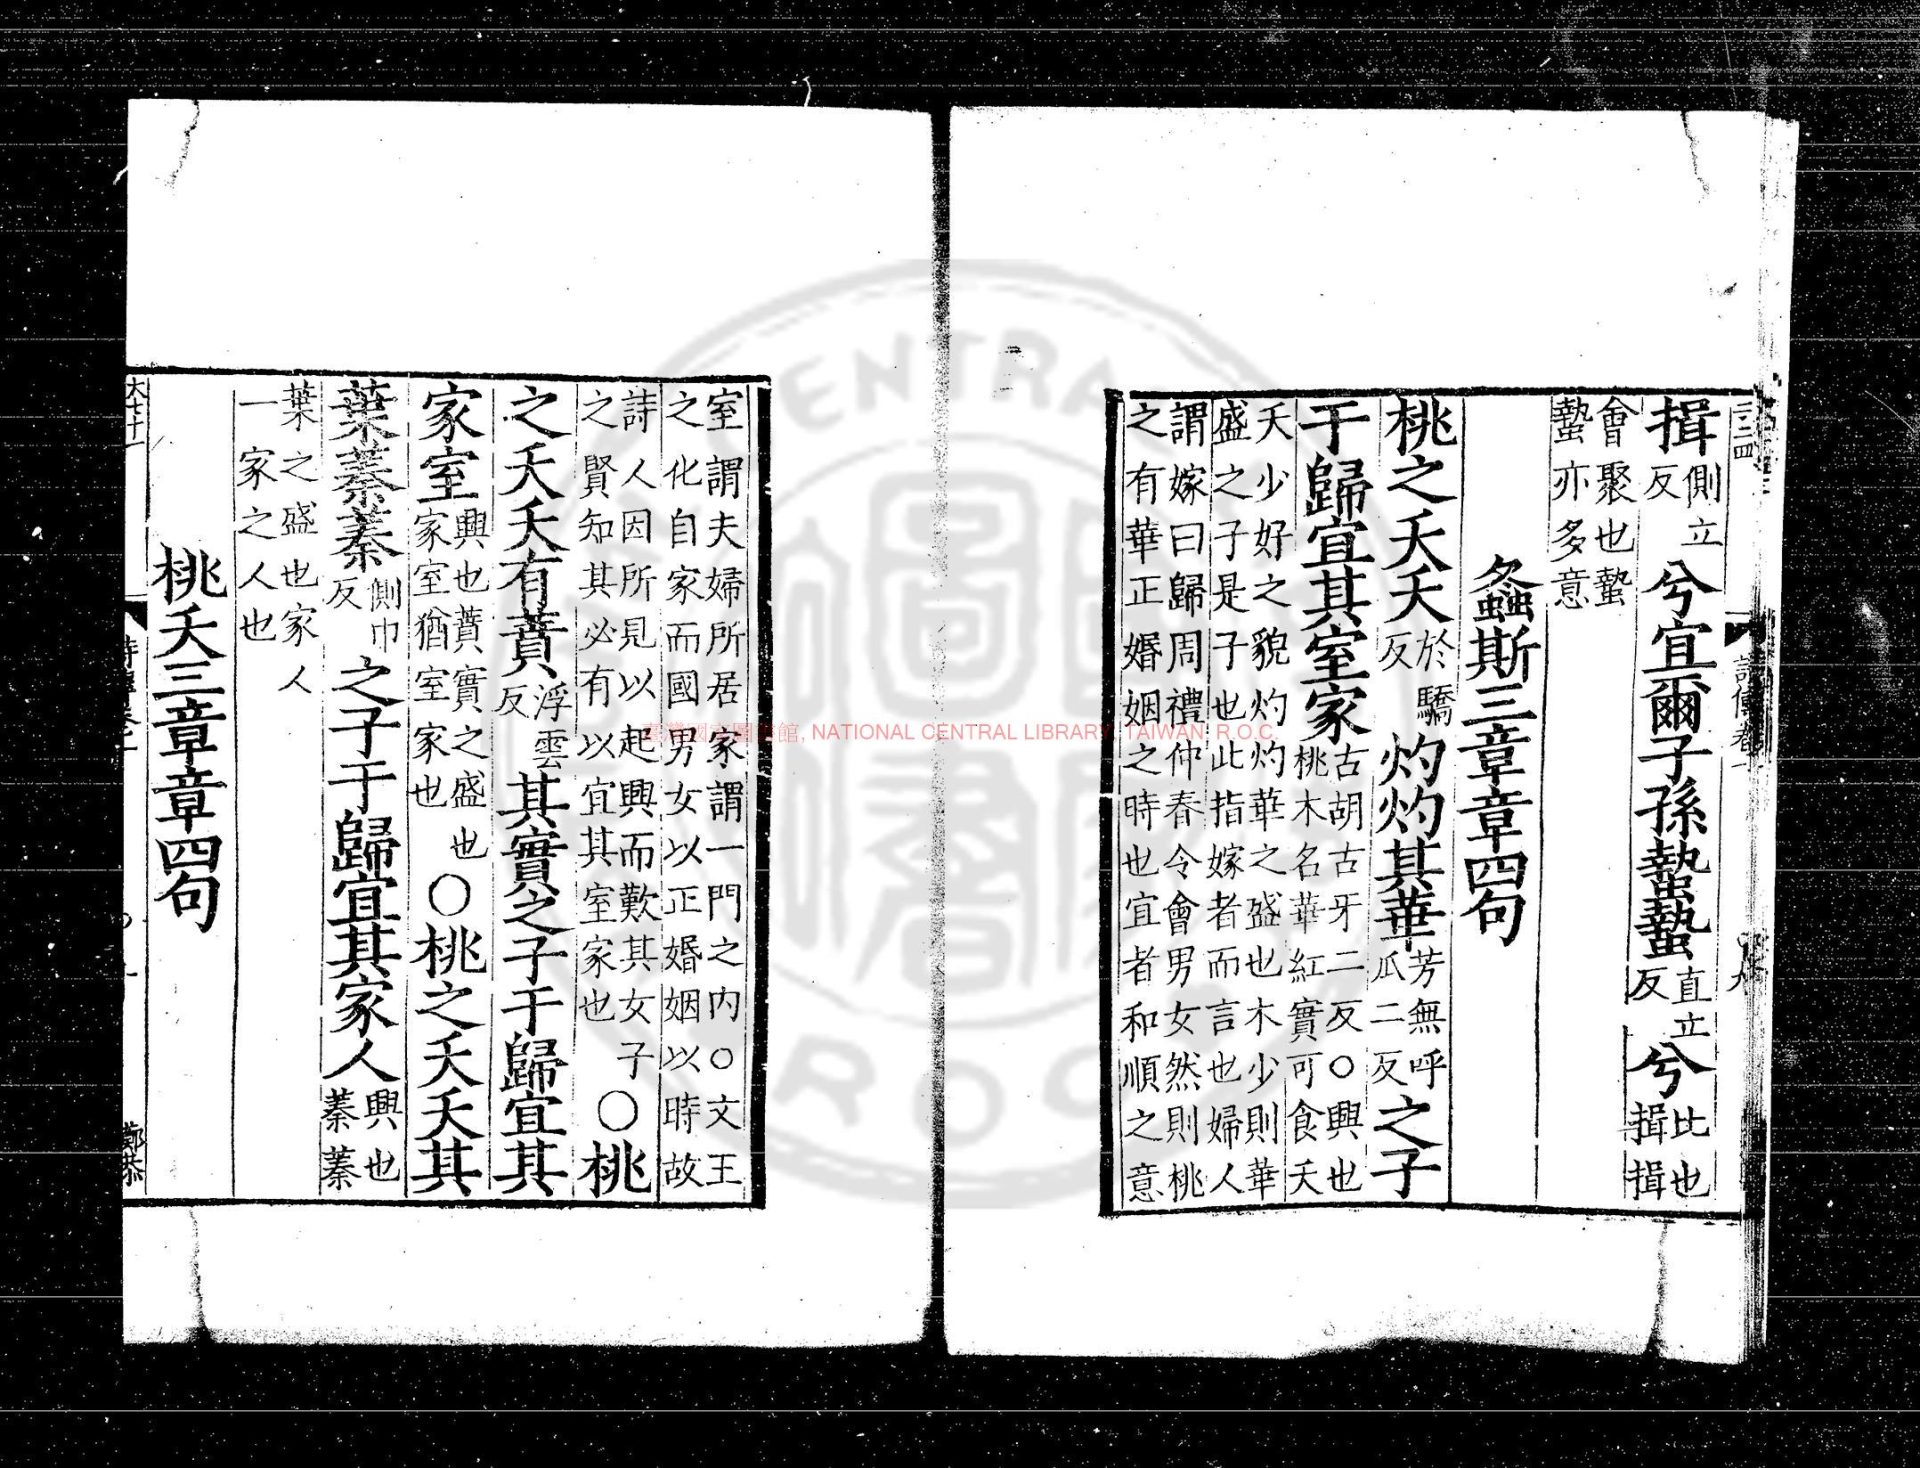 揖側立反兮宜爾子孫蟄蟄直立反兮比也揖揖
會聚也蟄蟄亦多意
螽斯三章章四句
桃之夭夭於驕反灼灼其華芳無呼瓜二反之子
于歸宜其室家古胡古牙二反○興也桃木名華紅實可食夭
夭少好之貌灼灼華之盛也木少則華盛之子是子也此指嫁者而言也婦人
謂嫁曰歸周禮仲春令會男女然則桃之有華正婚姻之時也宜者和順之意
室謂夫婦所居家謂一門之內○文王之化自家而國男女以正婚姻以時故
詩人因所見以起興而歎其女子之賢知其必有以宜其室家也○桃
之夭夭有蕡浮雲反其實之子于歸宜其
家室興也蕡實之盛也家室猶室家也○桃之夭夭其
葉蓁蓁側巾反之子于歸宜其家人興也蓁蓁
葉之盛也家人一家之人也
桃夭三章章四句
鄭恭
臺灣國家圖書館, NATIONAL CENTRAL LIBRARY, TAIWAN. R.O.C.
CENTRAL
R.O.C